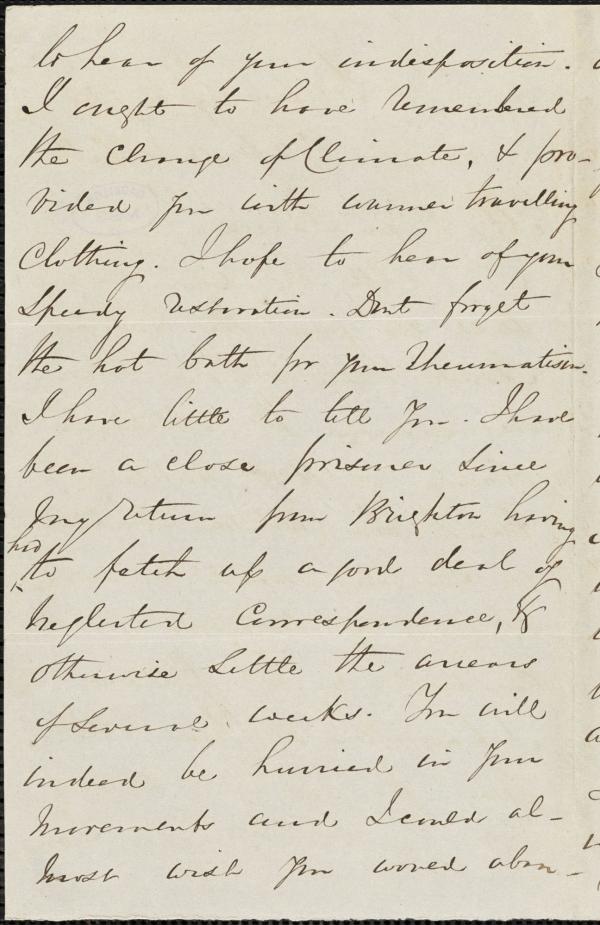 to hear of your indisposition.
I ought to have remembered
the change of Climate, & pro-
vided you with warmer travelling
Clothing. I hope to hear of your
Speedy restoration. Dont forget
the hot bath for your Rheumatism.
I have little to tell you. I have
been a close prisoner since
my return from Brighton having
had
to fetch up a good deal of
neglected Correspondence, &
otherwise settle the arrears
of several weeks. You will
indeed be hurried in your
movements and I could al-
most wish you would aban-